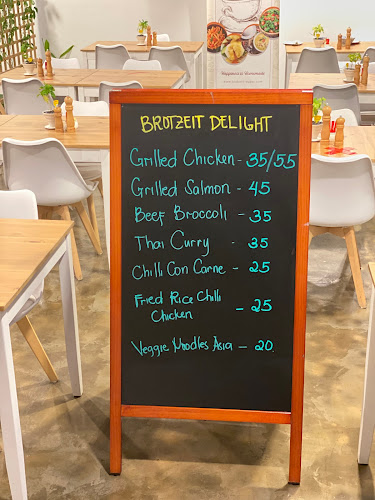 BROTZEIT DELIGHT
Grilled Chicken - 35/55
Grilled Salmon - 45
Beef Broccoli - 35
Thai Curry - 35
Chilli Con Carne - 25
Fried Rice Chilli
Chicken - 25
Veggie Noodles Asia - 20